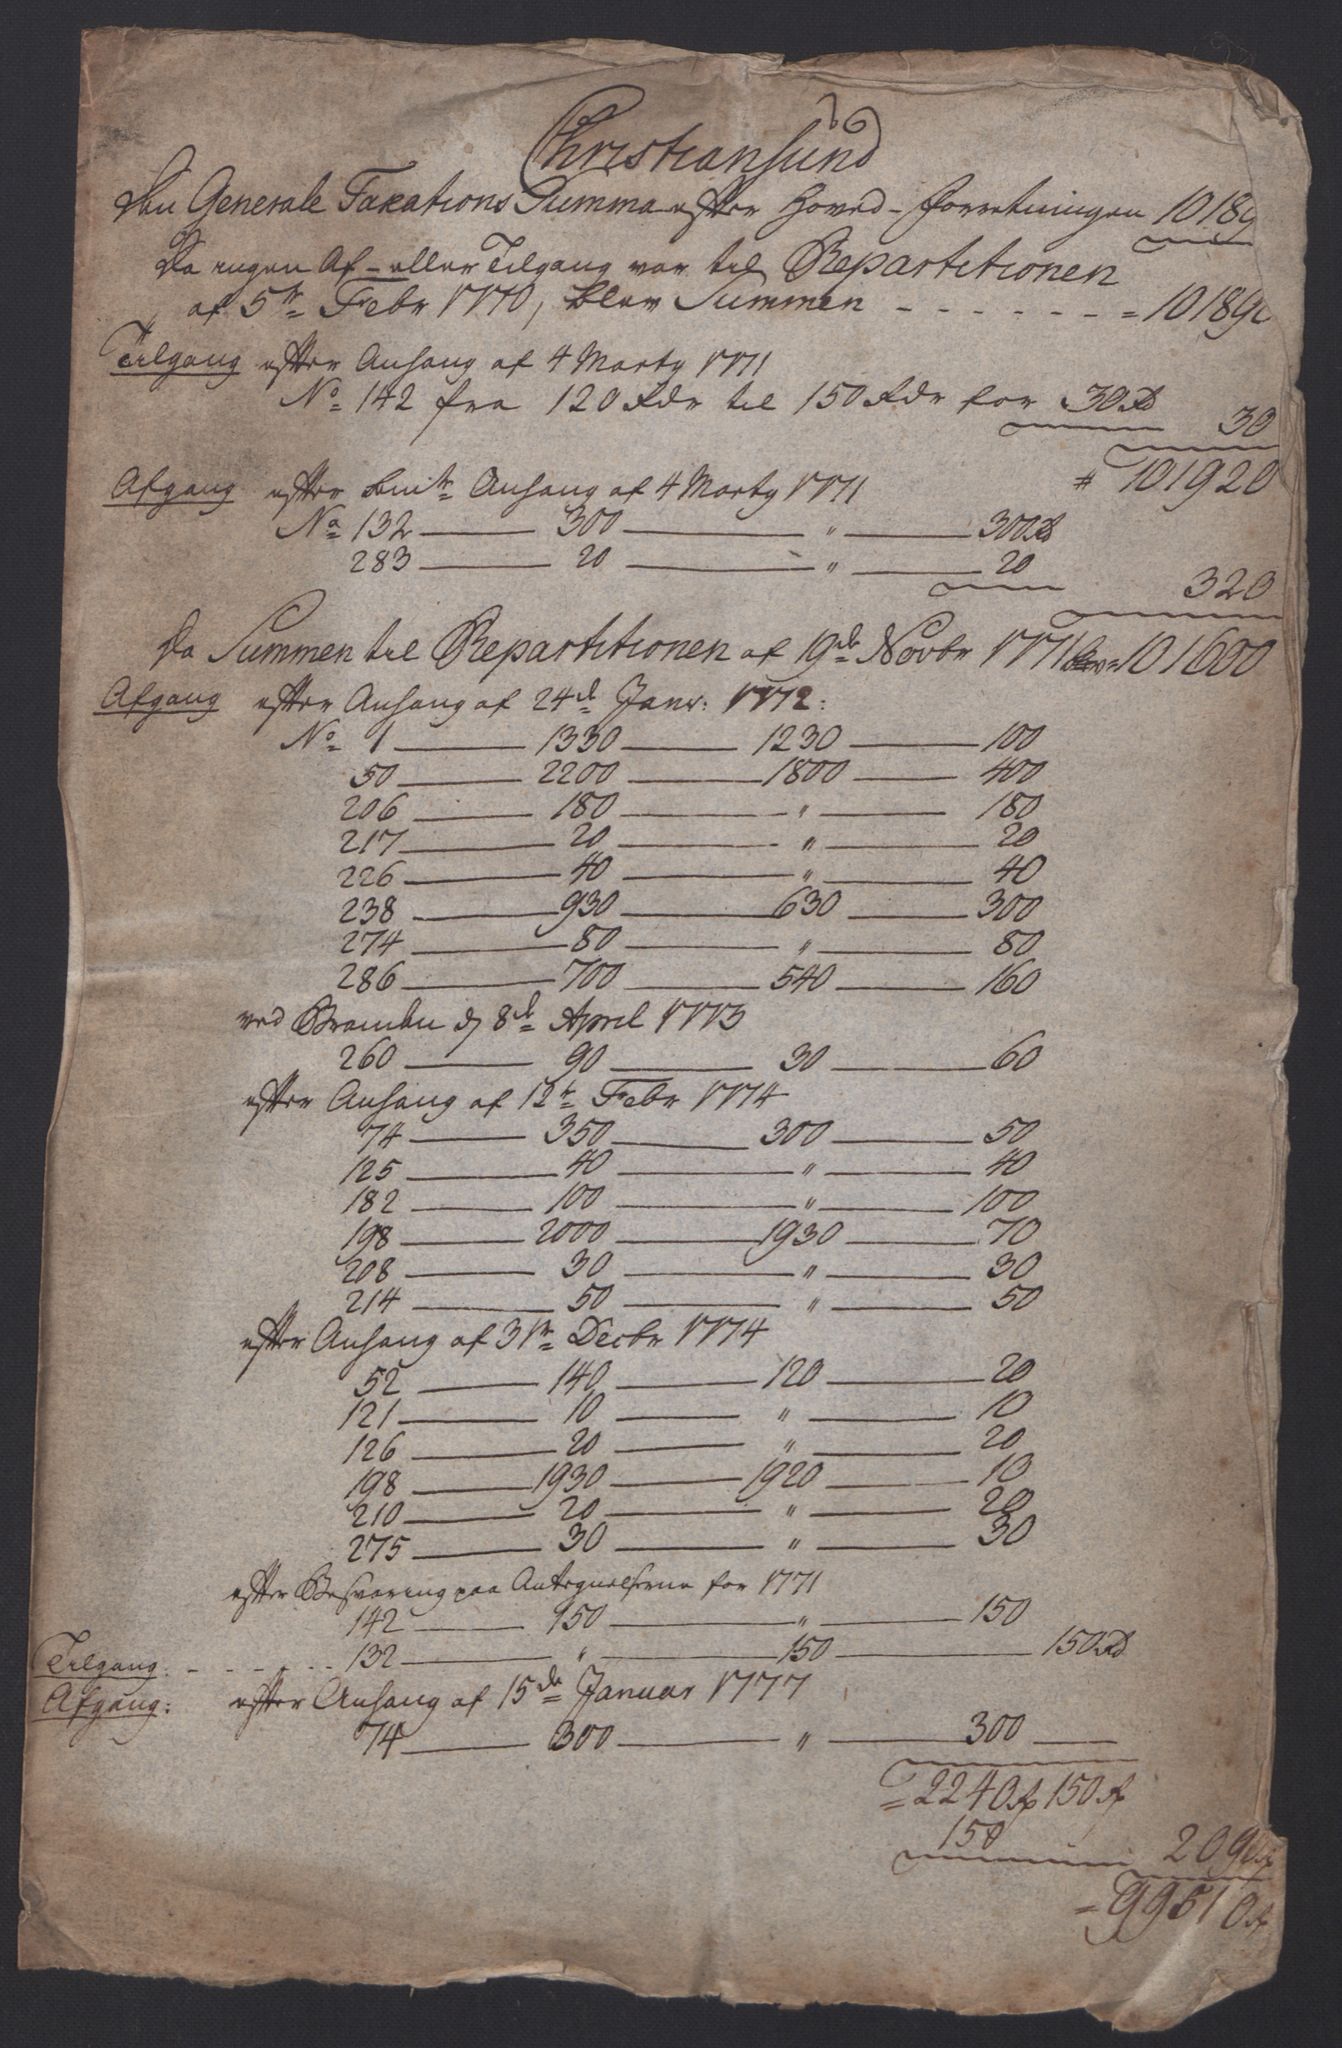 Christiansund
Den Generale Taxations Summa efter Hoved-forretningen 10189
Da ingen Af- eller Tilgang var til Repartitionen
af 5te Febr 1770, blev Summen - - - - - - = 10189
Tilgang efter Anhang af 4 Marty 1771
No 142 fra 120 Rdr til 150 Rdr for 30 Rd 30
# 101920
Afgang efter bmte Anhang af 4 Marty 1771
No 132 — 300 — " — 300 Rd
283 — 20 — " — 20
320
Da Summen til Repartitionen af 19de Novbr 1771 blev = 101600
Afgang efter Anhang af 24de Janr: 1772:
No 1 — 1330 — 1230 — 100
50 — 2200 — 1800 — 400
206 — 180 — " — 180
217 — 20 — " — 20
226 — 40 — " — 40
238 — 930 — 630 — 300
274 — 80 — " — 80
286 — 700 — 540 — 160
ved Branden d 8de April 1773
260 — 90 — 30 — 60
efter Anhang af 12te Febr 1774
74 — 350 — 300 — 50
125 — 40 — " — 40
182 — 100 — " — 100
198 — 2000 — 1930 — 70
208 — 30 — " — 30
214 — 50 — " — 50
efter Anhang af 31te Decbr 1774
52 — 140 — 120 — 20
121 — 10 — " — 10
126 — 20 — " — 20
198 — 1930 — 1920 — 10
210 — 20 — " — 20
275 — 30 — " — 30
efter Besvaring paa Antegnelserne for 1771
142 — 150 — " — 150
Tilgang: - - - - - - 132 — " — 150 — 150 Rd
Afgang: efter Anhang af 15de Januar 1777
74 — 300 — " — 300 —
= 2240 R 150 R
150 2090 R
= 99510 R